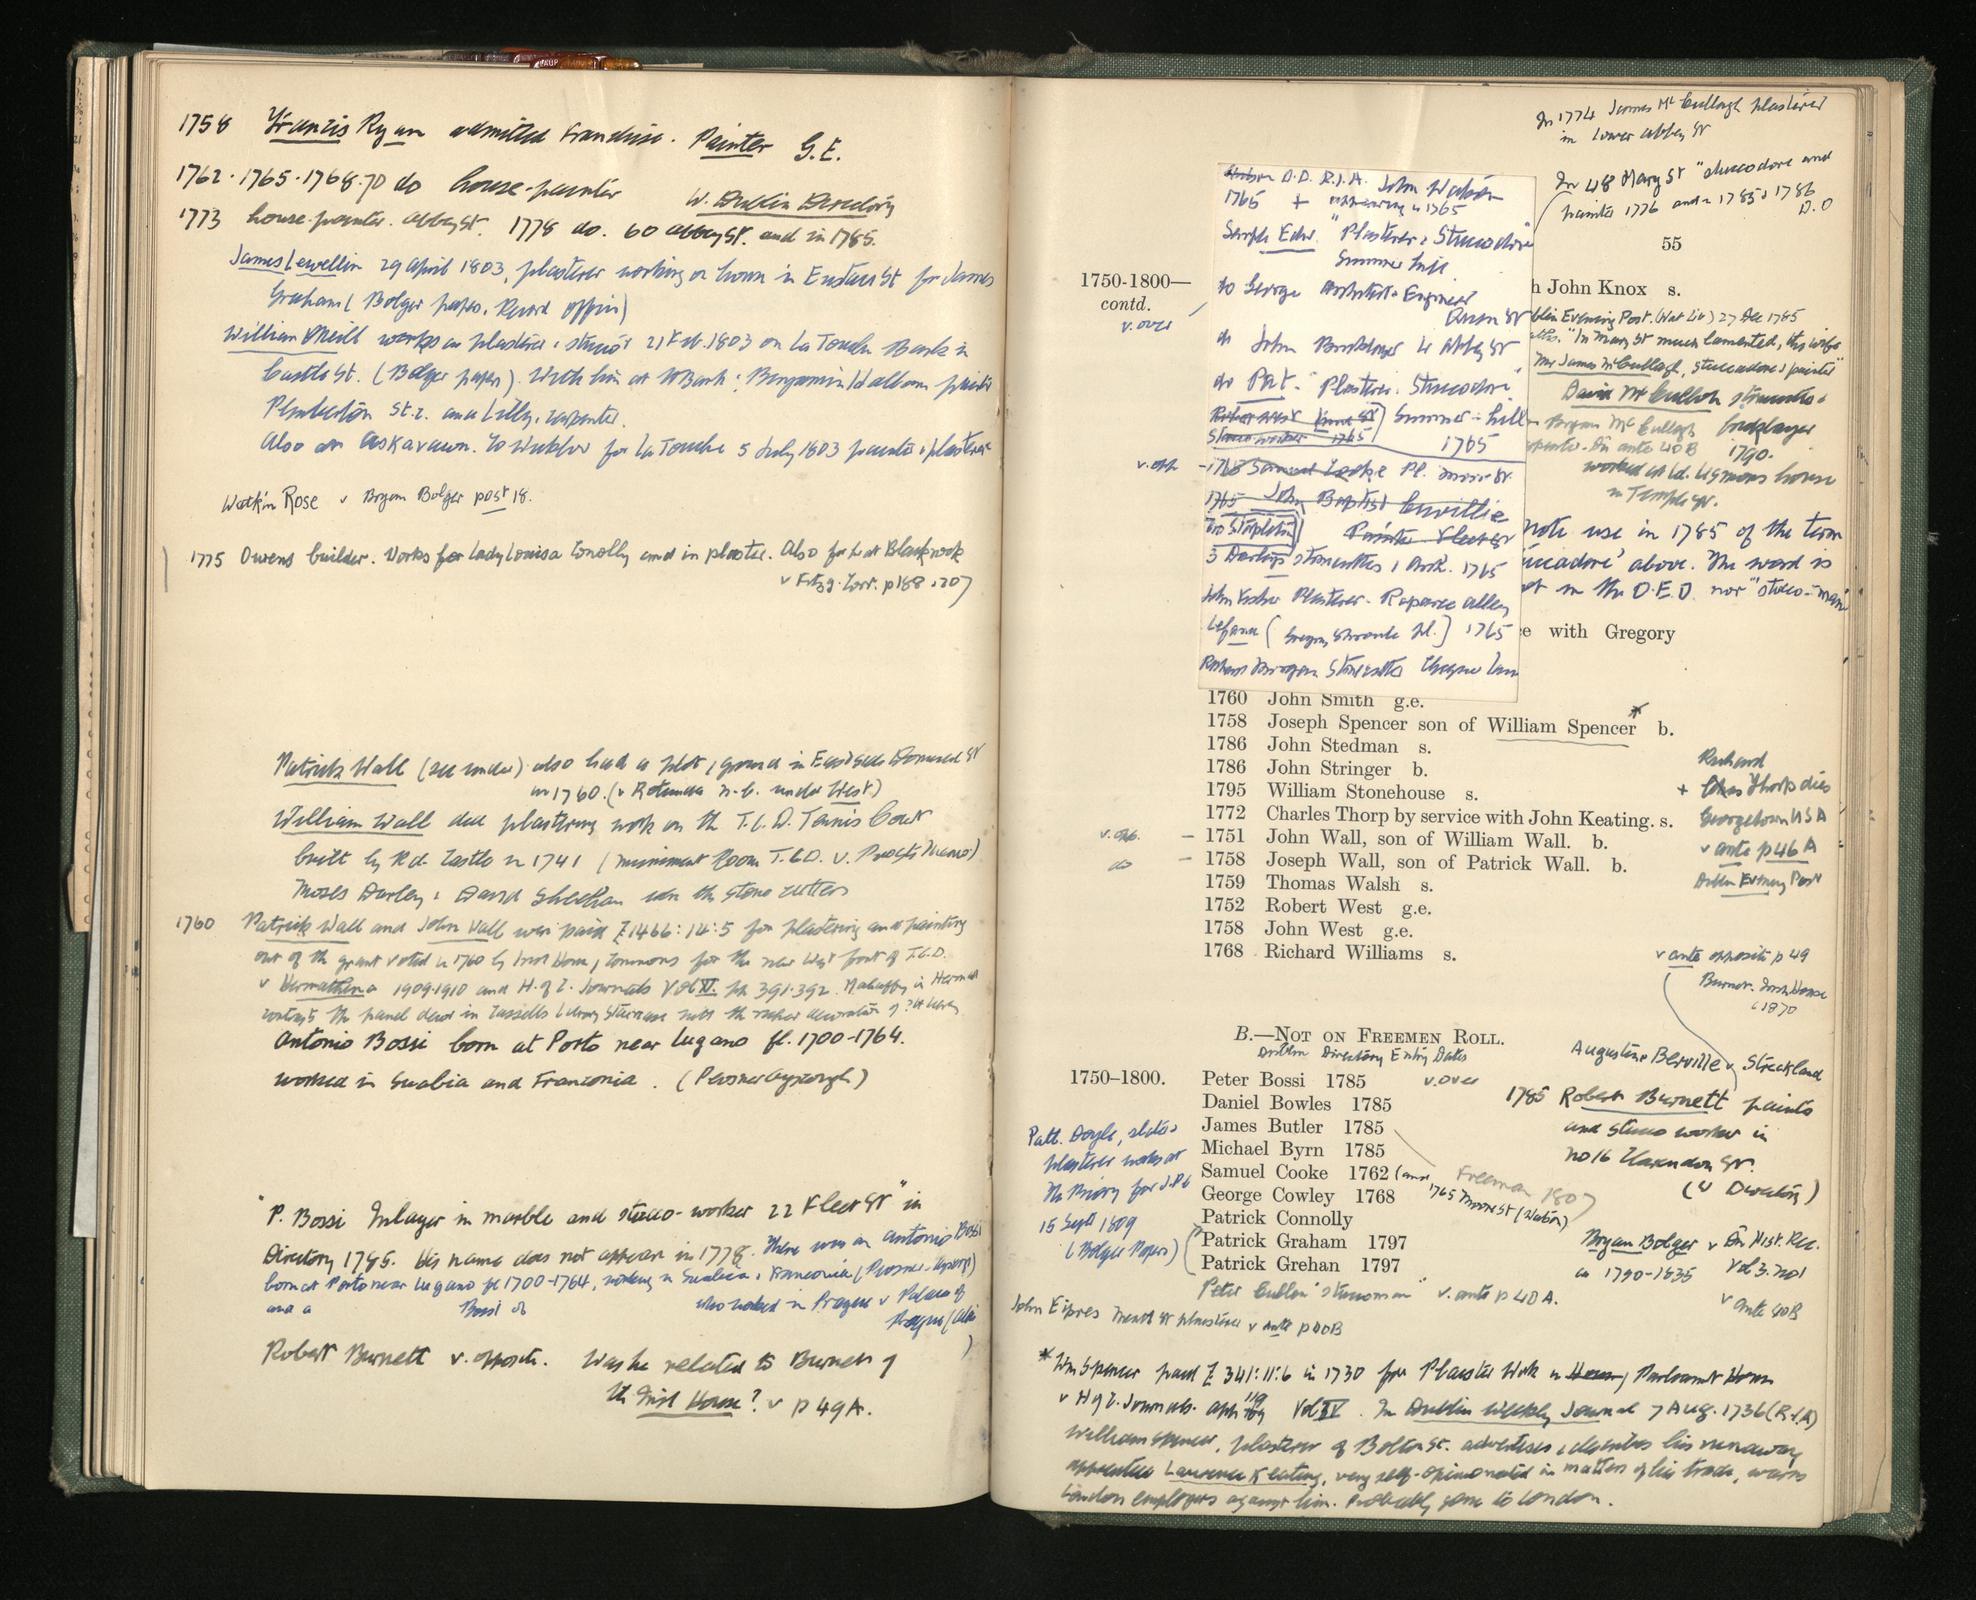 1758 Francis Ryan admitted Franchise. Painter G.E.
1762 . 1765 . 1768.70 do house-painter
W. Dublin Directory
1773 house-painter. abbey St. 1778 do. 60 abbey St. and in 1785.
James Lewellin 29 April 1803, plasterer working on house in Eustace St for James
Graham (Bolger papers. Record Office)
William Oneill works as plasterer & stucco 21 Feb. 1803 on La Touche Bank in
Castle St. (Bolger papers). With him at Bank: Benjamin painter
Pemberton St.c. and Lilly, carpenter.
Also at Co Wicklow for La Touche 5 July 1803 painter & plasterer
Watkin Rose v Bryan Bolger post 18.
1775 Owens builder. Works for Lady Louisa Conolly and in plaster. Also for her at Blackrock
v Fitzg. Corr. p188, 207
Patrick Wall (see under) also had a plot of ground in East side Dominick St
in 1760. (v Rotunda n.b. under West)
William Wall did plastering work on the T.C.D. Tennis Court
built by Rd. Castle in 1741 (muniment Room T.C.D.
Moses Darley & David Sheehan were the stone cutters
1760 Patrick Wall and John Wall were paid £1466:14:5 for plastering and painting
out of the grant voted in 1760 by Irish House of Commons for the new West front of T.C.D.
v Hermathena 1909-1910 and H. of C. Journals Vol XI. pp 391-392. Mahaffy in
the panel decor in Cassells Library Staircase with the richer decoration of
Antonio Bossi born at Porto near Lugano fl. 1700-1764.
worked in Suabia and Franconia. (Pevsner
"P. Bossi Inlayer in marble and stucco-worker 22 Fleet St" in
Directory 1785. His name does not appear in 1778. There was an Antonio Bossi
born at Porto near Lugano fl 1700-1764, working in Suabia & Franconia (Pevsner
and a Bossi who worked in Prague v Palaces of
Prague
Robert Burnett v. opposite. Was he related to Burnet of
the Irish House? v p 49A.
In 1774 James McCullagh plasterer
in Lower abbey St
In 48 Mary St "stuccodore and
painter 1776 and in 1785 & 1786
D.D
55
D.D. R.I.A. John Watson
1765 + appearing in 1765
Semple Edw. "Plasterer & Stuccodore"
Summer hill
do George Architect & Engineer
Queen St
do John Bricklayer abbey St
do Pat. "Plasterer. Stuccodore"
Robert West
Stucco worker 1765 Summer-hill
1765
v. opp. - 1768 Samuel Cooke Pl. Moore St.
1765 John Baptist Cuvillie
Geo Stapleton Painter Fleet St
3 Darleys stonecutters & Arch. 1765
John Plasterer. Raparee alley
Lefanu (Gregory 1765
Richard Stonecutter
1750-1800—
contd.
v. over
h John Knox s.
blin Evening Post. (Nat Lib) 27 Dec 1785
"In Mary St much lamented, the wife
Mr James McCullagh, stuccodore & painter"
David McCulloh
Bryan McCullagh bricklayer
ante 40B 1790.
worked at Ld. house
in Temple St.
note use in 1785 of the term
uccadore' above. The word is
not in the O.E.D. nor "stucco-man"
ce with Gregory
1760 John Smith g.e.
1758 Joseph Spencer son of William Spencer* b.
1786 John Stedman s.
1786 John Stringer b.
1795 William Stonehouse s.
1772 Charles Thorp by service with John Keating. s.
1751 John Wall, son of William Wall. b.
1758 Joseph Wall, son of Patrick Wall. b.
1759 Thomas Walsh s.
1752 Robert West g.e.
1758 John West g.e.
1768 Richard Williams s.
v. opp.
do
Richard
+ Chas Thorp dies
Georgetown USA
v ante p46A
Dublin Evening Post
v ante opposite p 49
Burnet. Irish House
c 1870
B.—Not on Freemen Roll.
Dublin Directory Entry Dates
1750-1800.
Peter Bossi 1785 v. over
Daniel Bowles 1785
James Butler 1785
Michael Byrn 1785
Samuel Cooke 1762 (and
George Cowley 1768 1765 Moore St (Watson)
Freeman 1807
Patrick Connolly
Patrick Graham 1797
Patrick Grehan 1797
Augustine Berville v Strickland
1785 Robert Burnett painter
and stucco worker in
no 16 Clarendon St.
(v Directory)
Patt. Doyle, slater &
plasterer works at
the Priory for J.P.C
15 Sept 1809
(Bolger Papers)
Bryan Bolger v Dn Hist. Rec.
in 1790-1835 Vol 3. no 1
v ante 40B
Peter Cullen 'stuccoman' v. ante p 40A.
John Eipres plasterer v ante p 40B
* Wm Spencer paid £341:11:6 in 1730 for Plaister Work in House of Parliament House
v H of C. Journals. App. 119 Vol IV. In Dublin Weekly Journal 7 Aug. 1736 (R.I.A)
William Spencer, plasterer of Bolton St. advertises & describes his runaway
apprentice Lawrence Keating, very self-opinionated in matters of his trade, warns
London employers against him. Probably gone to London.